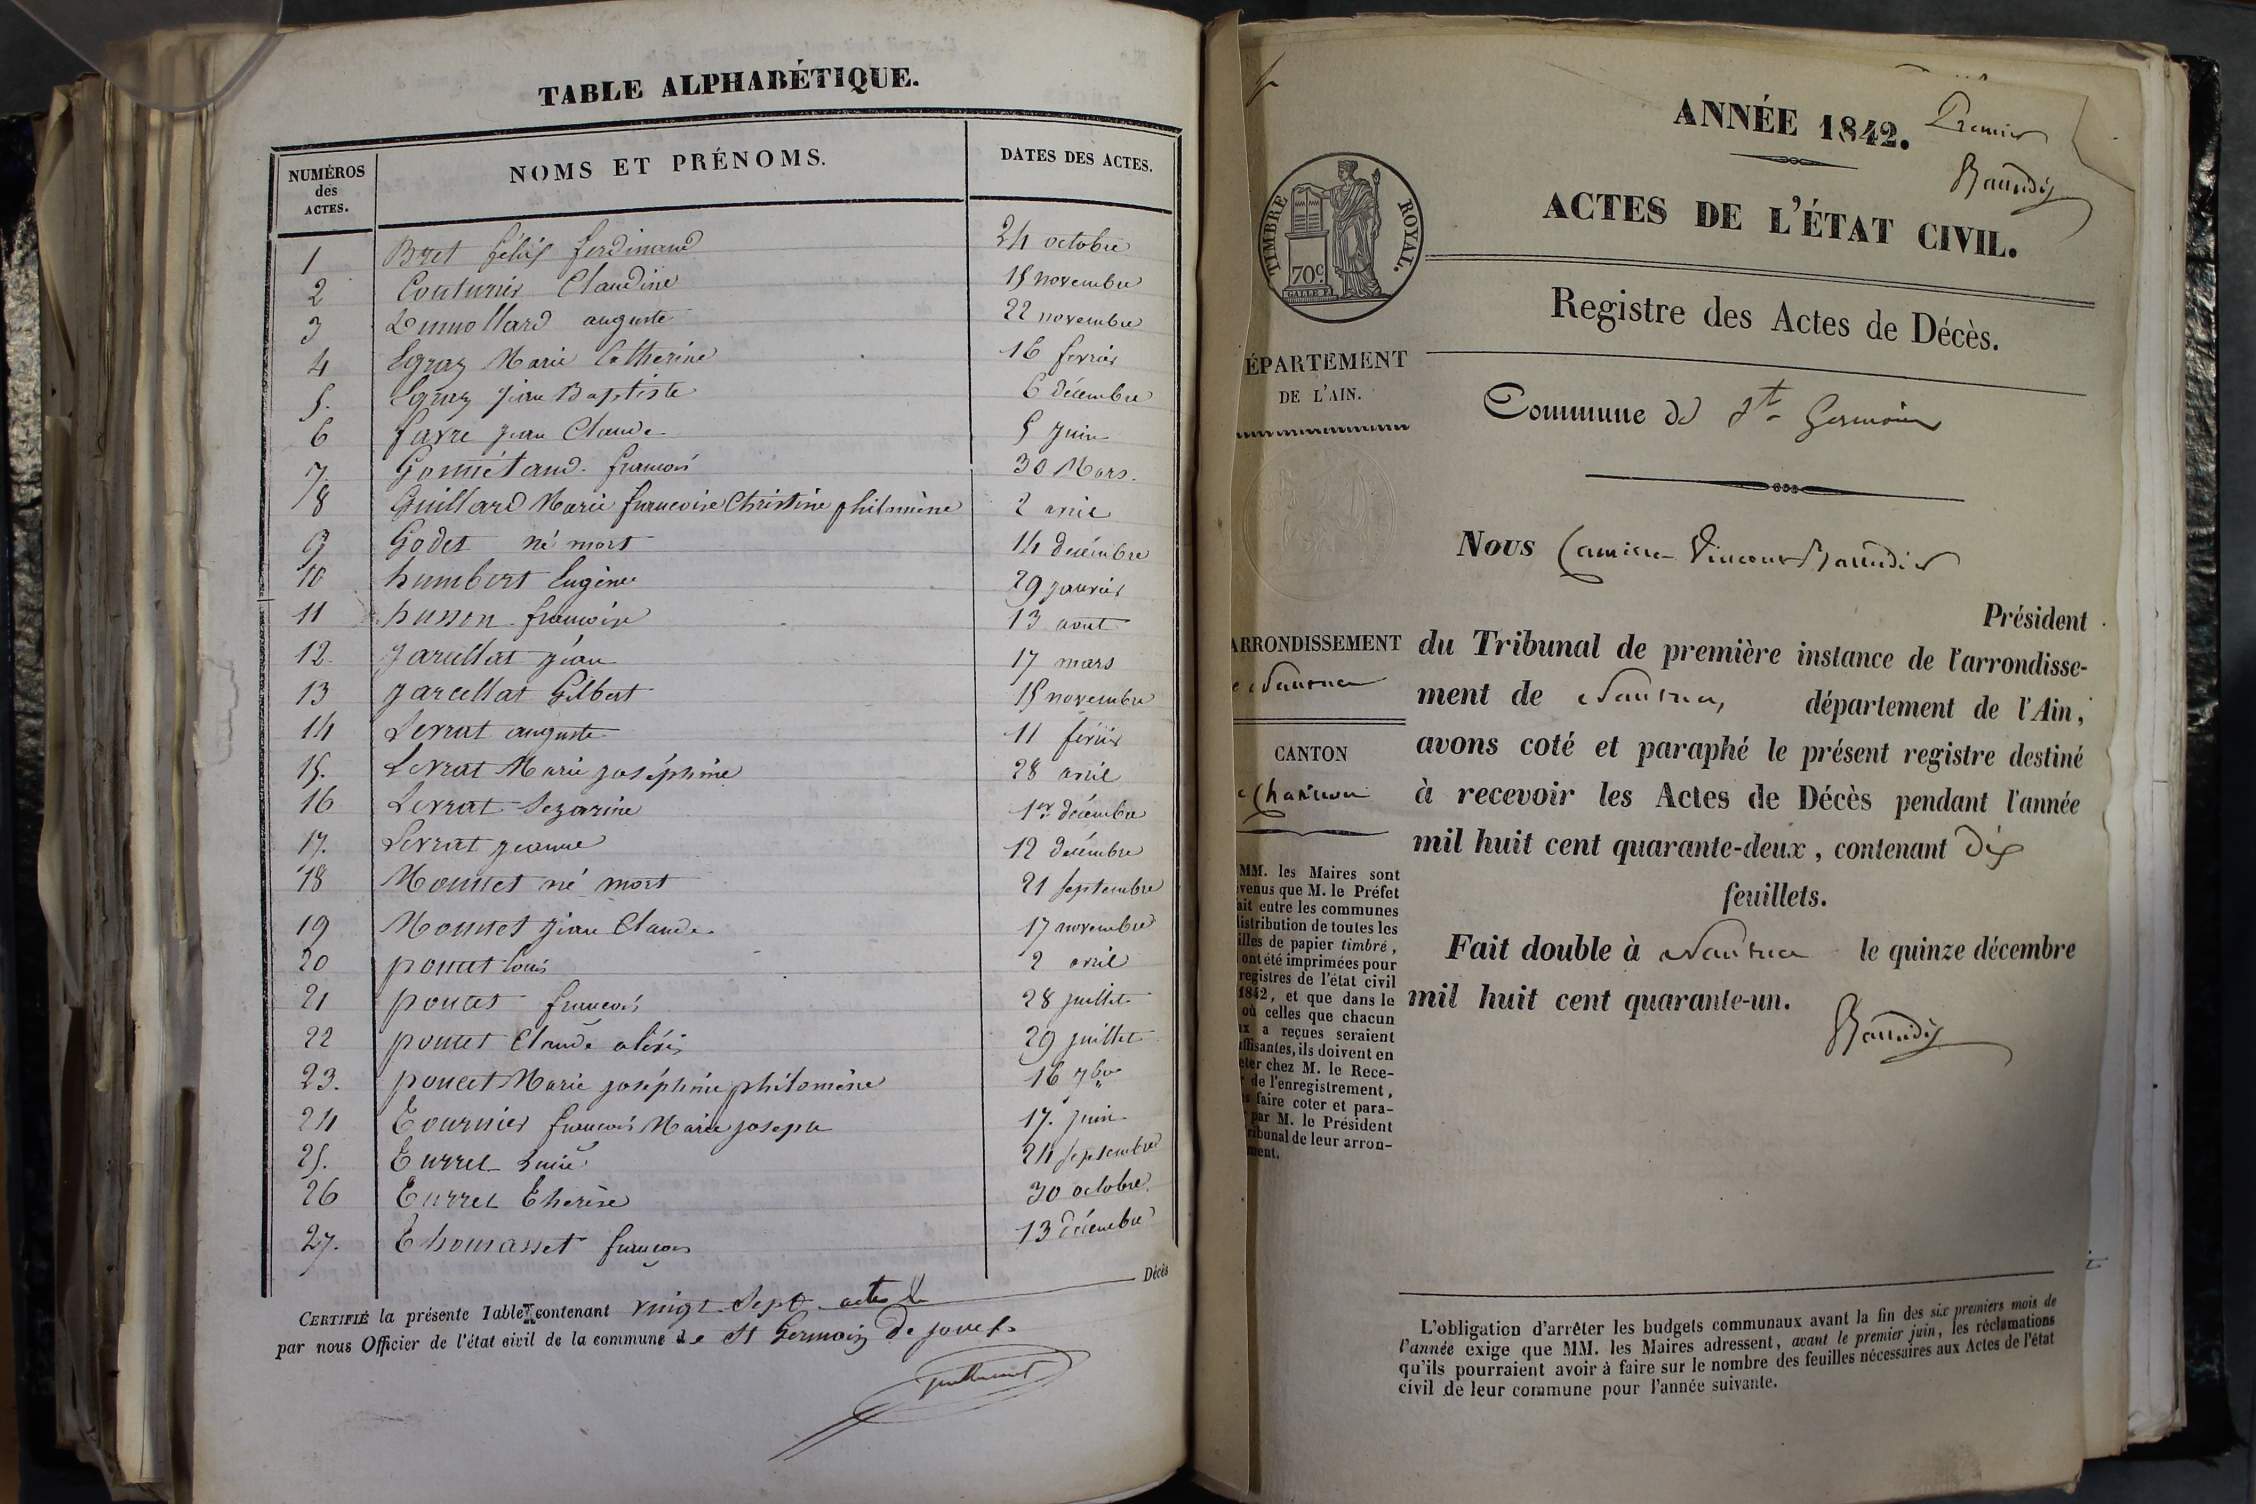 TABLE ALPHABÉTIQUE.
NUMÉROS des ACTES. NOMS ET PRÉNOMS. DATES DES ACTES.
1 Bret félix ferdinand 24 octobre
2 Couturier Claudine 15 novembre
3 auguste 22 novembre
4 Egraz Marie Catherine 16 fevrier
5. Egraz jean Baptiste 6 décembre
6 favre jean Claude 5 juin
7. françois 30 Mars.
8 Guillard Marie francoise Christine philomène 2 avril
9 Godet né mort 14 decémbre
10 humbert Eugène 29 janvier
11 husson françoise 13 aout
12. jarcellat jéan 17 mars
13 jarcellat Gilbert 15 novembre
14 Levrat auguste 11 févrièr
15. Levrat Marie joséphine 28 avril
16 Levrat Sezarine 1er décémbre
17. Levrat jeanne 12 decémbre
18 Monnet né mort 21 septembre
19 Monnet jean Claude. 17 novembre
20 poncet Louis 2 avril
21 poncet françois 28 juillet
22 poncet Claude aléxis 29 juillet
23. poncet Marie joséphine philomène 16 7bre
24 Tournier françois Marie joseph 17. juin
25. Turrel 24 septembre
26 Turrel Therèse 30 octobre.
27. Thomasset françois 13 décembre
CERTIFIÉ la présente Table contenant vingt-sept actes de Décès
par nous Officier de l'état civil de la commune de St Germain De joux.
ANNÉE 1842.
Premier
Baudin
ACTES DE L'ÉTAT CIVIL.
TIMBRE ROYAL.
70c
GALLE F.
Registre des Actes de Décès.
ÉPARTEMENT
DE L'AIN.
Commune de St Germain
Nous Vincent
Président
ARRONDISSEMENT
e Nantua
du Tribunal de première instance de l'arrondisse-
ment de Nantua, département de l'Ain,
avons coté et paraphé le présent registre destiné
à recevoir les Actes de Décès pendant l'année
mil huit cent quarante-deux, contenant dix
feuillets.
CANTON
Fait double à Nantua le quinze décembre
mil huit cent quarante-un.
MM. les Maires sont
venus que M. le Préfet
ait entre les communes
distribution de toutes les
illes de papier timbré,
ont été imprimées pour
registres de l'état civil
1842, et que dans le
où celles que chacun
ux a reçues seraient
ffisantes, ils doivent en
eter chez M. le Rece-
de l'enregistrement,
s faire coter et para-
par M. le Président
ribunal de leur arron-
ment.
L'obligation d'arrêter les budgets communaux avant la fin des six premiers mois de
l'année exige que MM. les Maires adressent, avant le premier juin, les réclamations
qu'ils pourraient avoir à faire sur le nombre des feuilles nécessaires aux Actes de l'état
civil de leur commune pour l'année suivante.